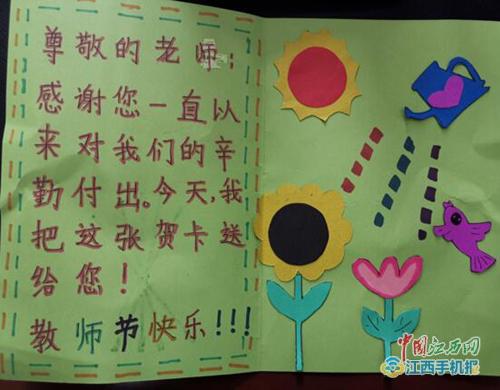 尊敬的老师：
感谢您一直以
来对我们的辛
勤付出。今天,我
把这张贺卡送
给您！
教师节快乐!!!
中国江西网
江西手机报